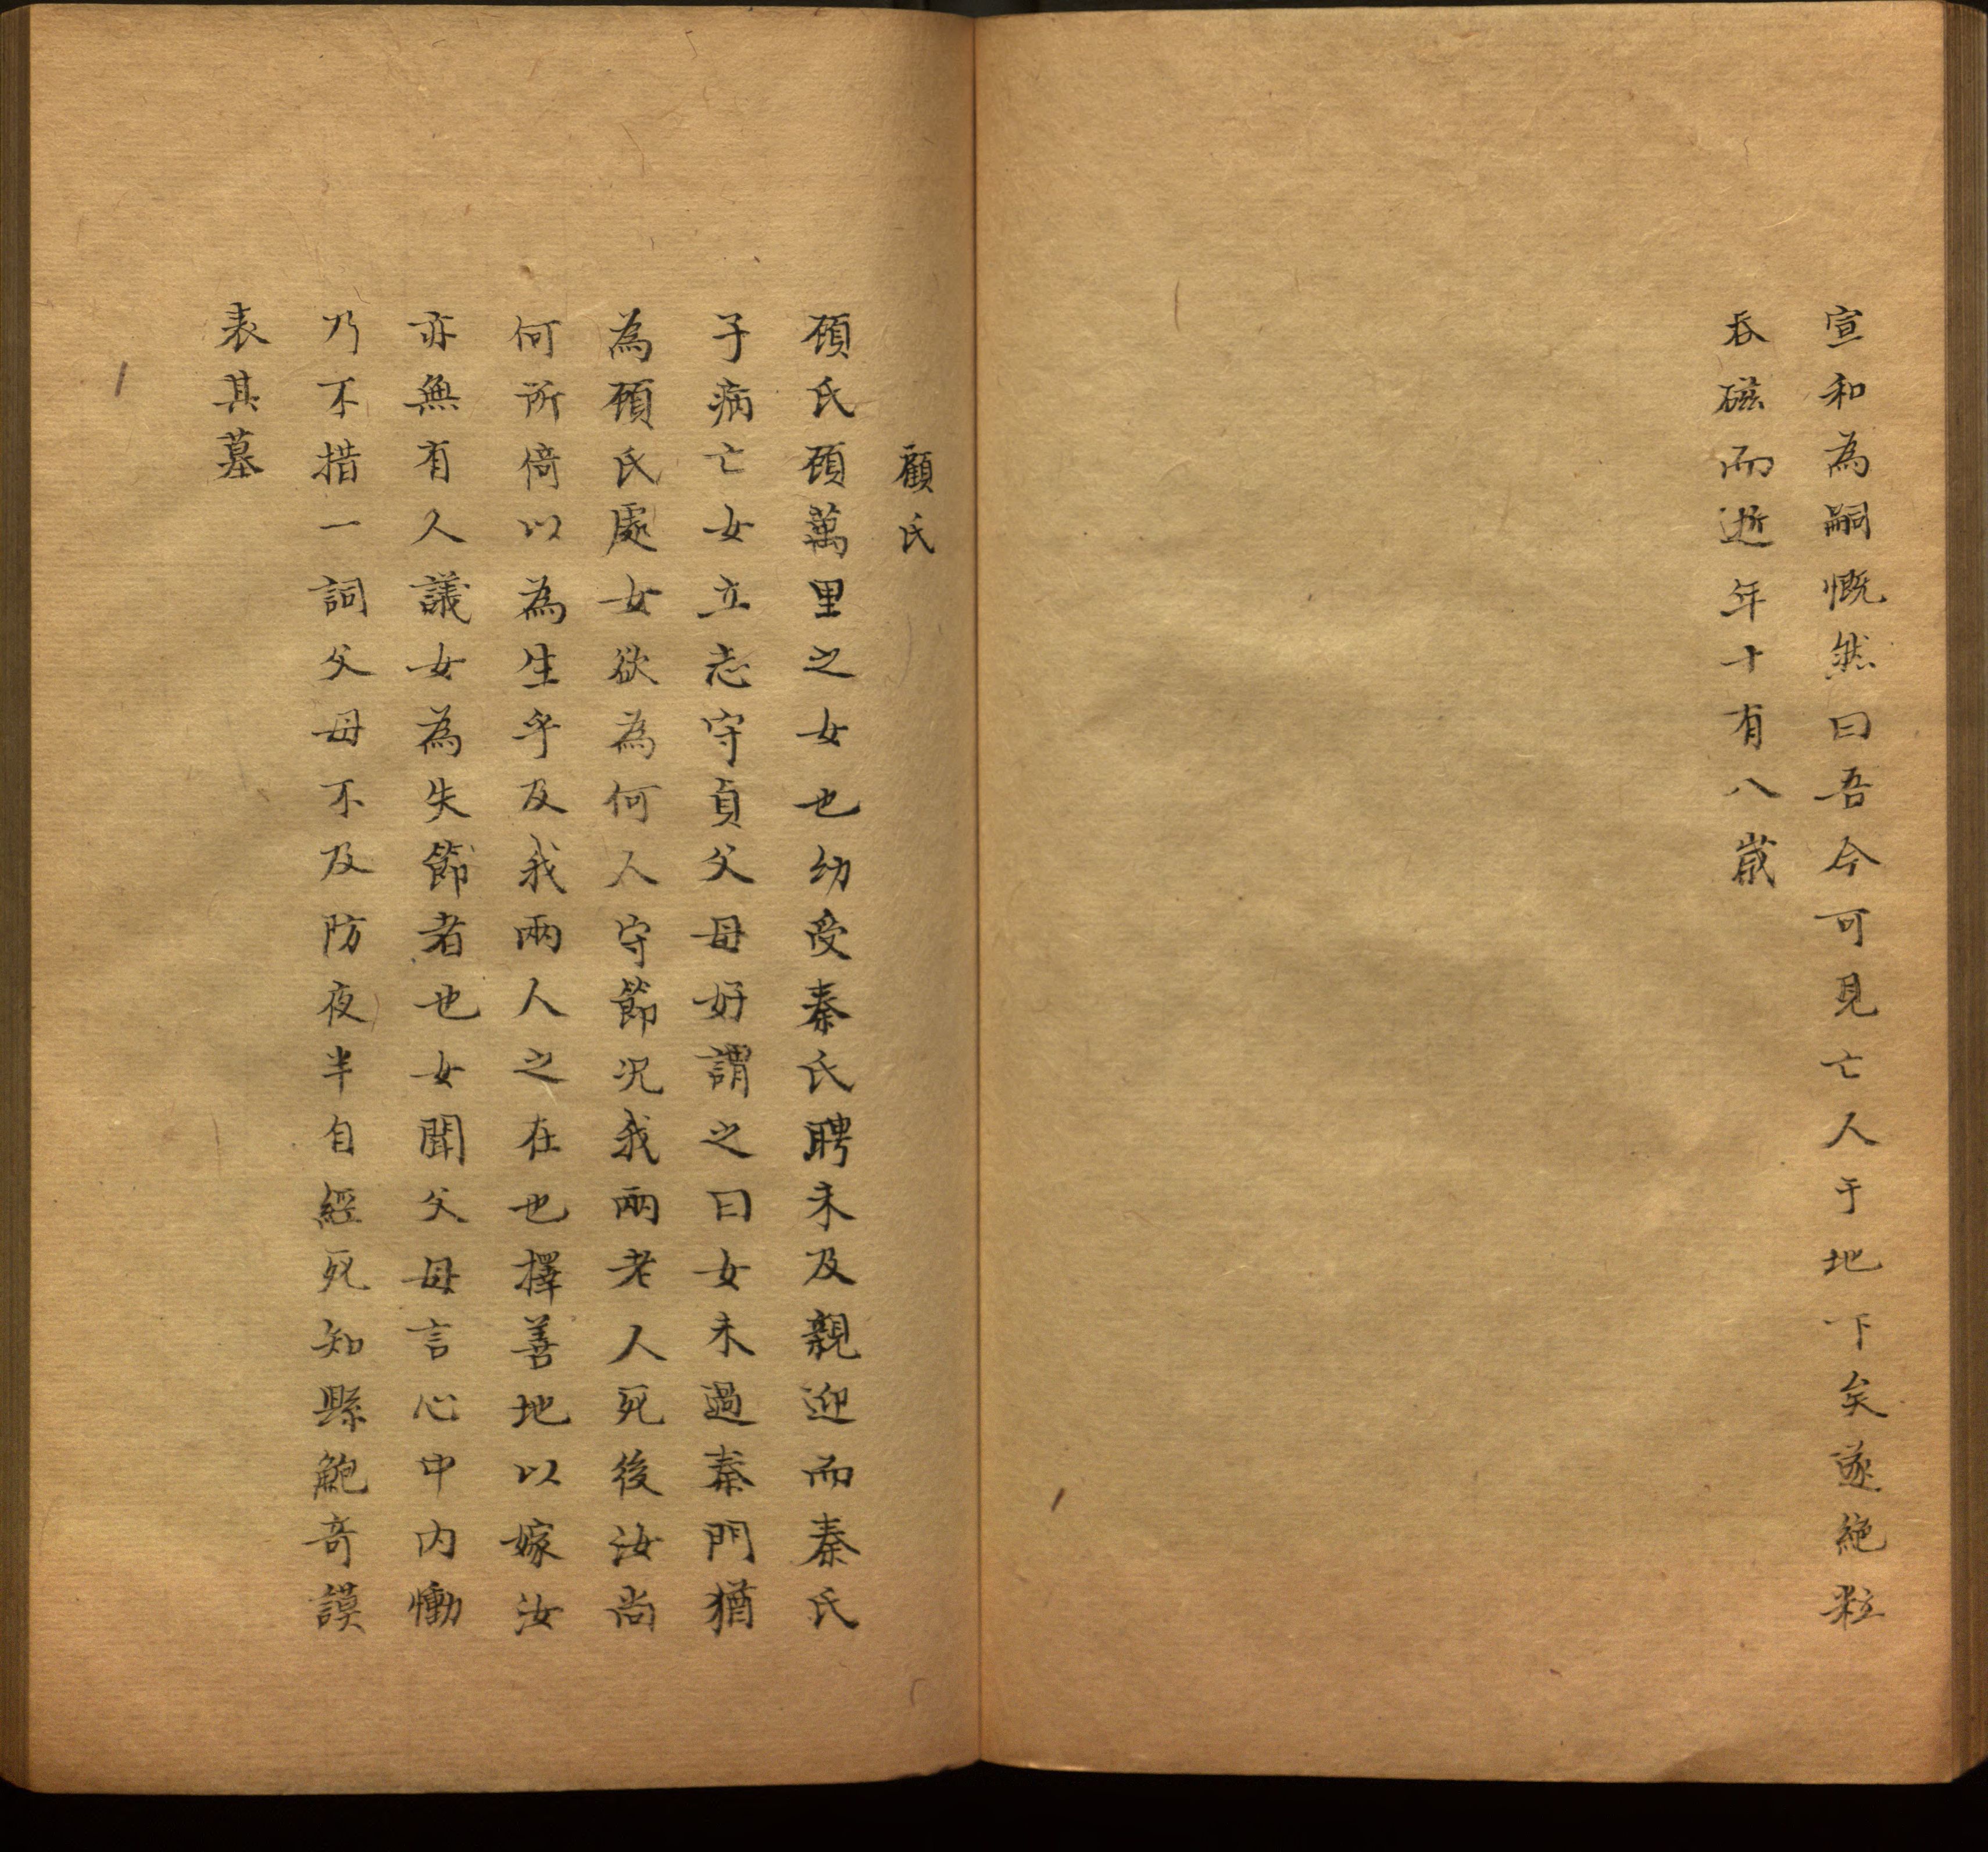 宣和為嗣慨然曰吾今可見亡人于地下矣遂絶粒
吞磁而逝年十有八歲
顧氏
頋氏頋萬里之女也幼受秦氏聘未及親迎而秦氏
子病亡女立志守貞父母好謂之曰女未過秦門猶
為頋氏處女欲為何人守節况我兩老人死後汝尚
何所倚以為生乎及我兩人之在也擇善地以嫁汝
亦無有人議女為失節者也女聞父母言心中内慟
乃不措一詞父母不及防夜半自經死知縣鮑奇謨
表其墓